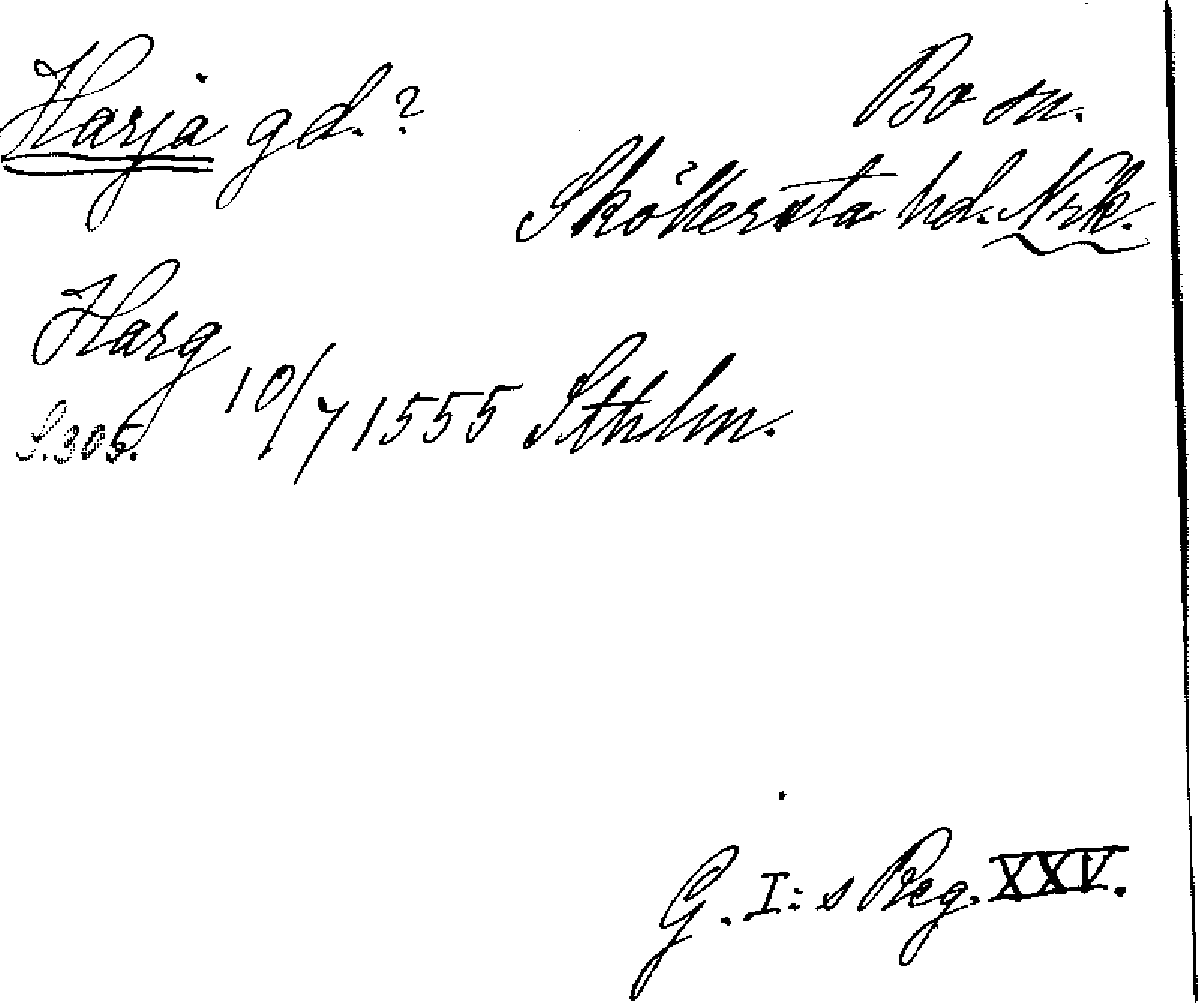 Harja gd.?
Bo sn.
Sköllersta hd. Nrk.
Harg
10/7 1555 Sthlm.
S. 305.
G. I:s Reg. XXV.